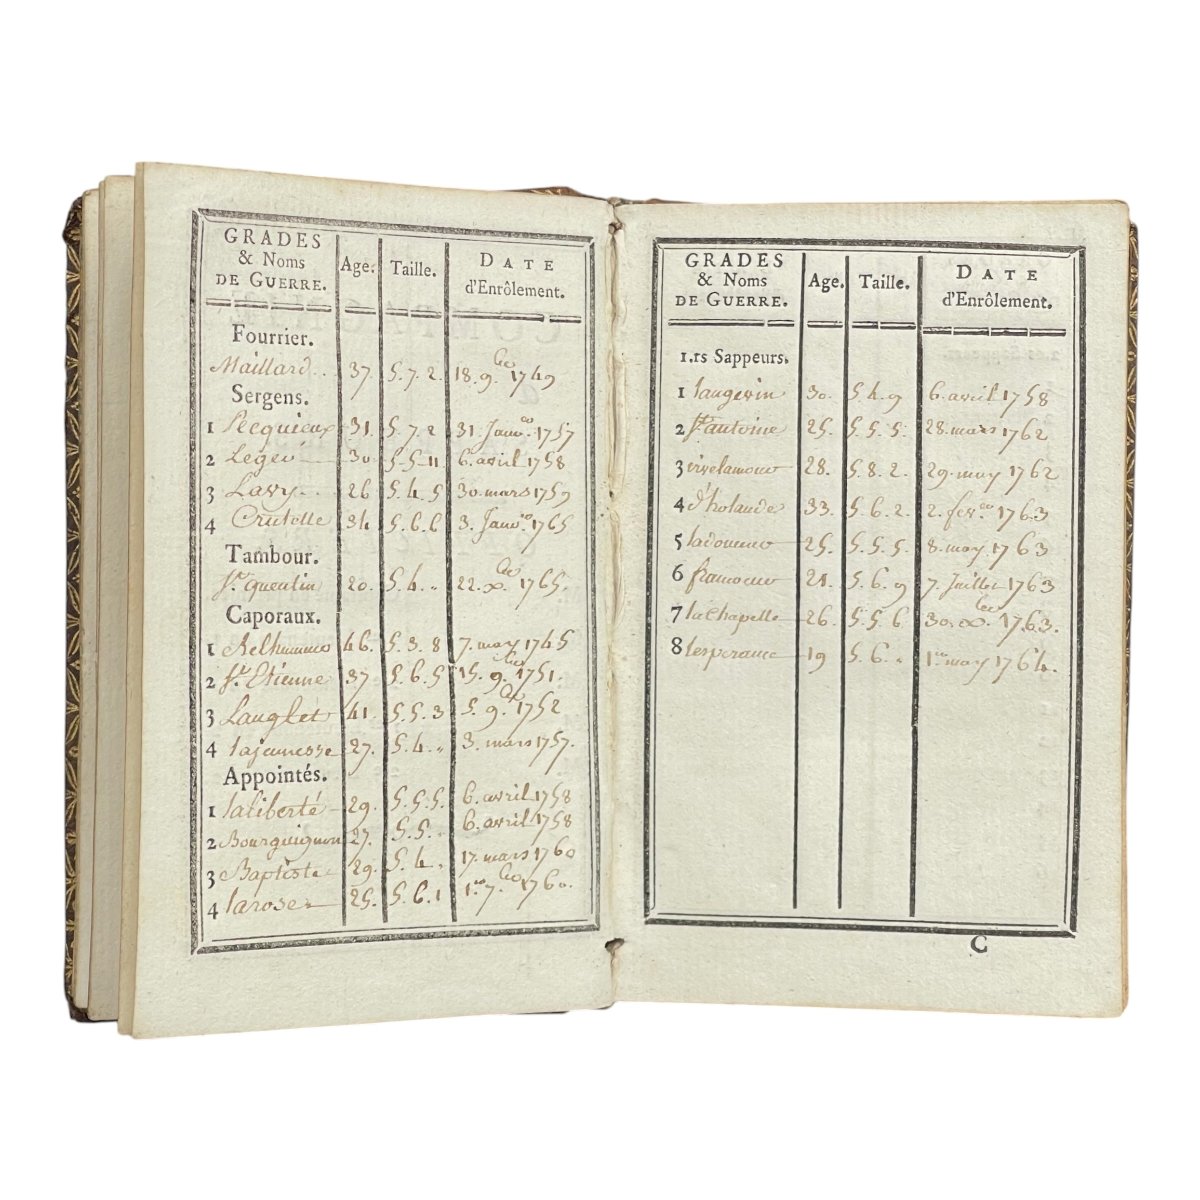 GRADES & Noms DE GUERRE. Age. Taille. DATE d'Enrôlement.
Fourrier.
Maillard.. 37. 5. 7. 2. 18. 9.bre 1749
Sergens.
1 31. 5. 7. 2 31. Janv. 1757
2 Leger 30 5. 5. 11 6. avril 1758
3 Lavy... 26 5. 4. 5 30. mars 1759
4 Crutelle 34 5. 6. 6 3. Janv. 1765
Tambour.
St. quentin 20. 5. 4. „ 22. x.bre 1765.
Caporaux.
1 46. 5. 3. 8 7. may 1745
2 St. Etienne 37 5. 6. 5 15. 9.bre 1751.
3 Langlet 41. 5. 5. 3 5. 9.bre 1752
4 lajeunesse 27. 5. 4. „ 3. mars 1757.
Appointés.
1 laliberté 29. 5. 5. 5. 6. avril 1758
2 Bourguignon 27. 5. 5. „ 6. avril 1758
3 Baptiste 29. 5. 4. „ 17. mars 1760
4 larose 25. 5. 6. 1 1.er 7.bre 1760.
GRADES & Noms DE GUERRE. Age. Taille. DATE d'Enrôlement.
1.rs Sappeurs.
1 langevin 30. 5. 4. 9 6. avril 1758
2 St. antoine 25. 5. 5. 5. 28. mars 1762
3 28. 5. 8. 2. 29. may 1762
4 d'holande 33. 5. 6. 2. 2. fev. 1763
5 ladouceur 25. 5. 5. 5. 8. may. 1763
6 21. 5. 6. 9 7. Juillet 1763
7 la Chapelle 26. 5. 5. 6 30. x.bre 1763.
8 lesperance 19 5. 6. „ 1.er may 1764.
C